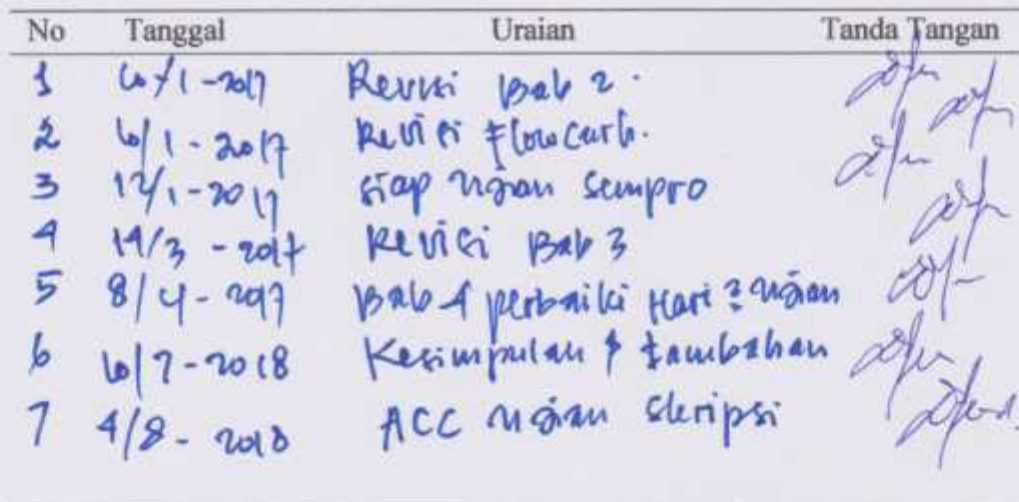 No Tanggal Uraian Tanda Tangan
1 10/1-2017 Revisi Bab 2.
2 10/1-2017 Revisi Flowcarh.
3 12/1-2017 siap ujian Sempro
4 14/3-2017 Revisi Bab 3
5 8/4-2017 Bab 4 perbaiki Hari ujian
6 10/7-2018 Kesimpulan & tambahan
7 4/8-2018 ACC ujian skripsi